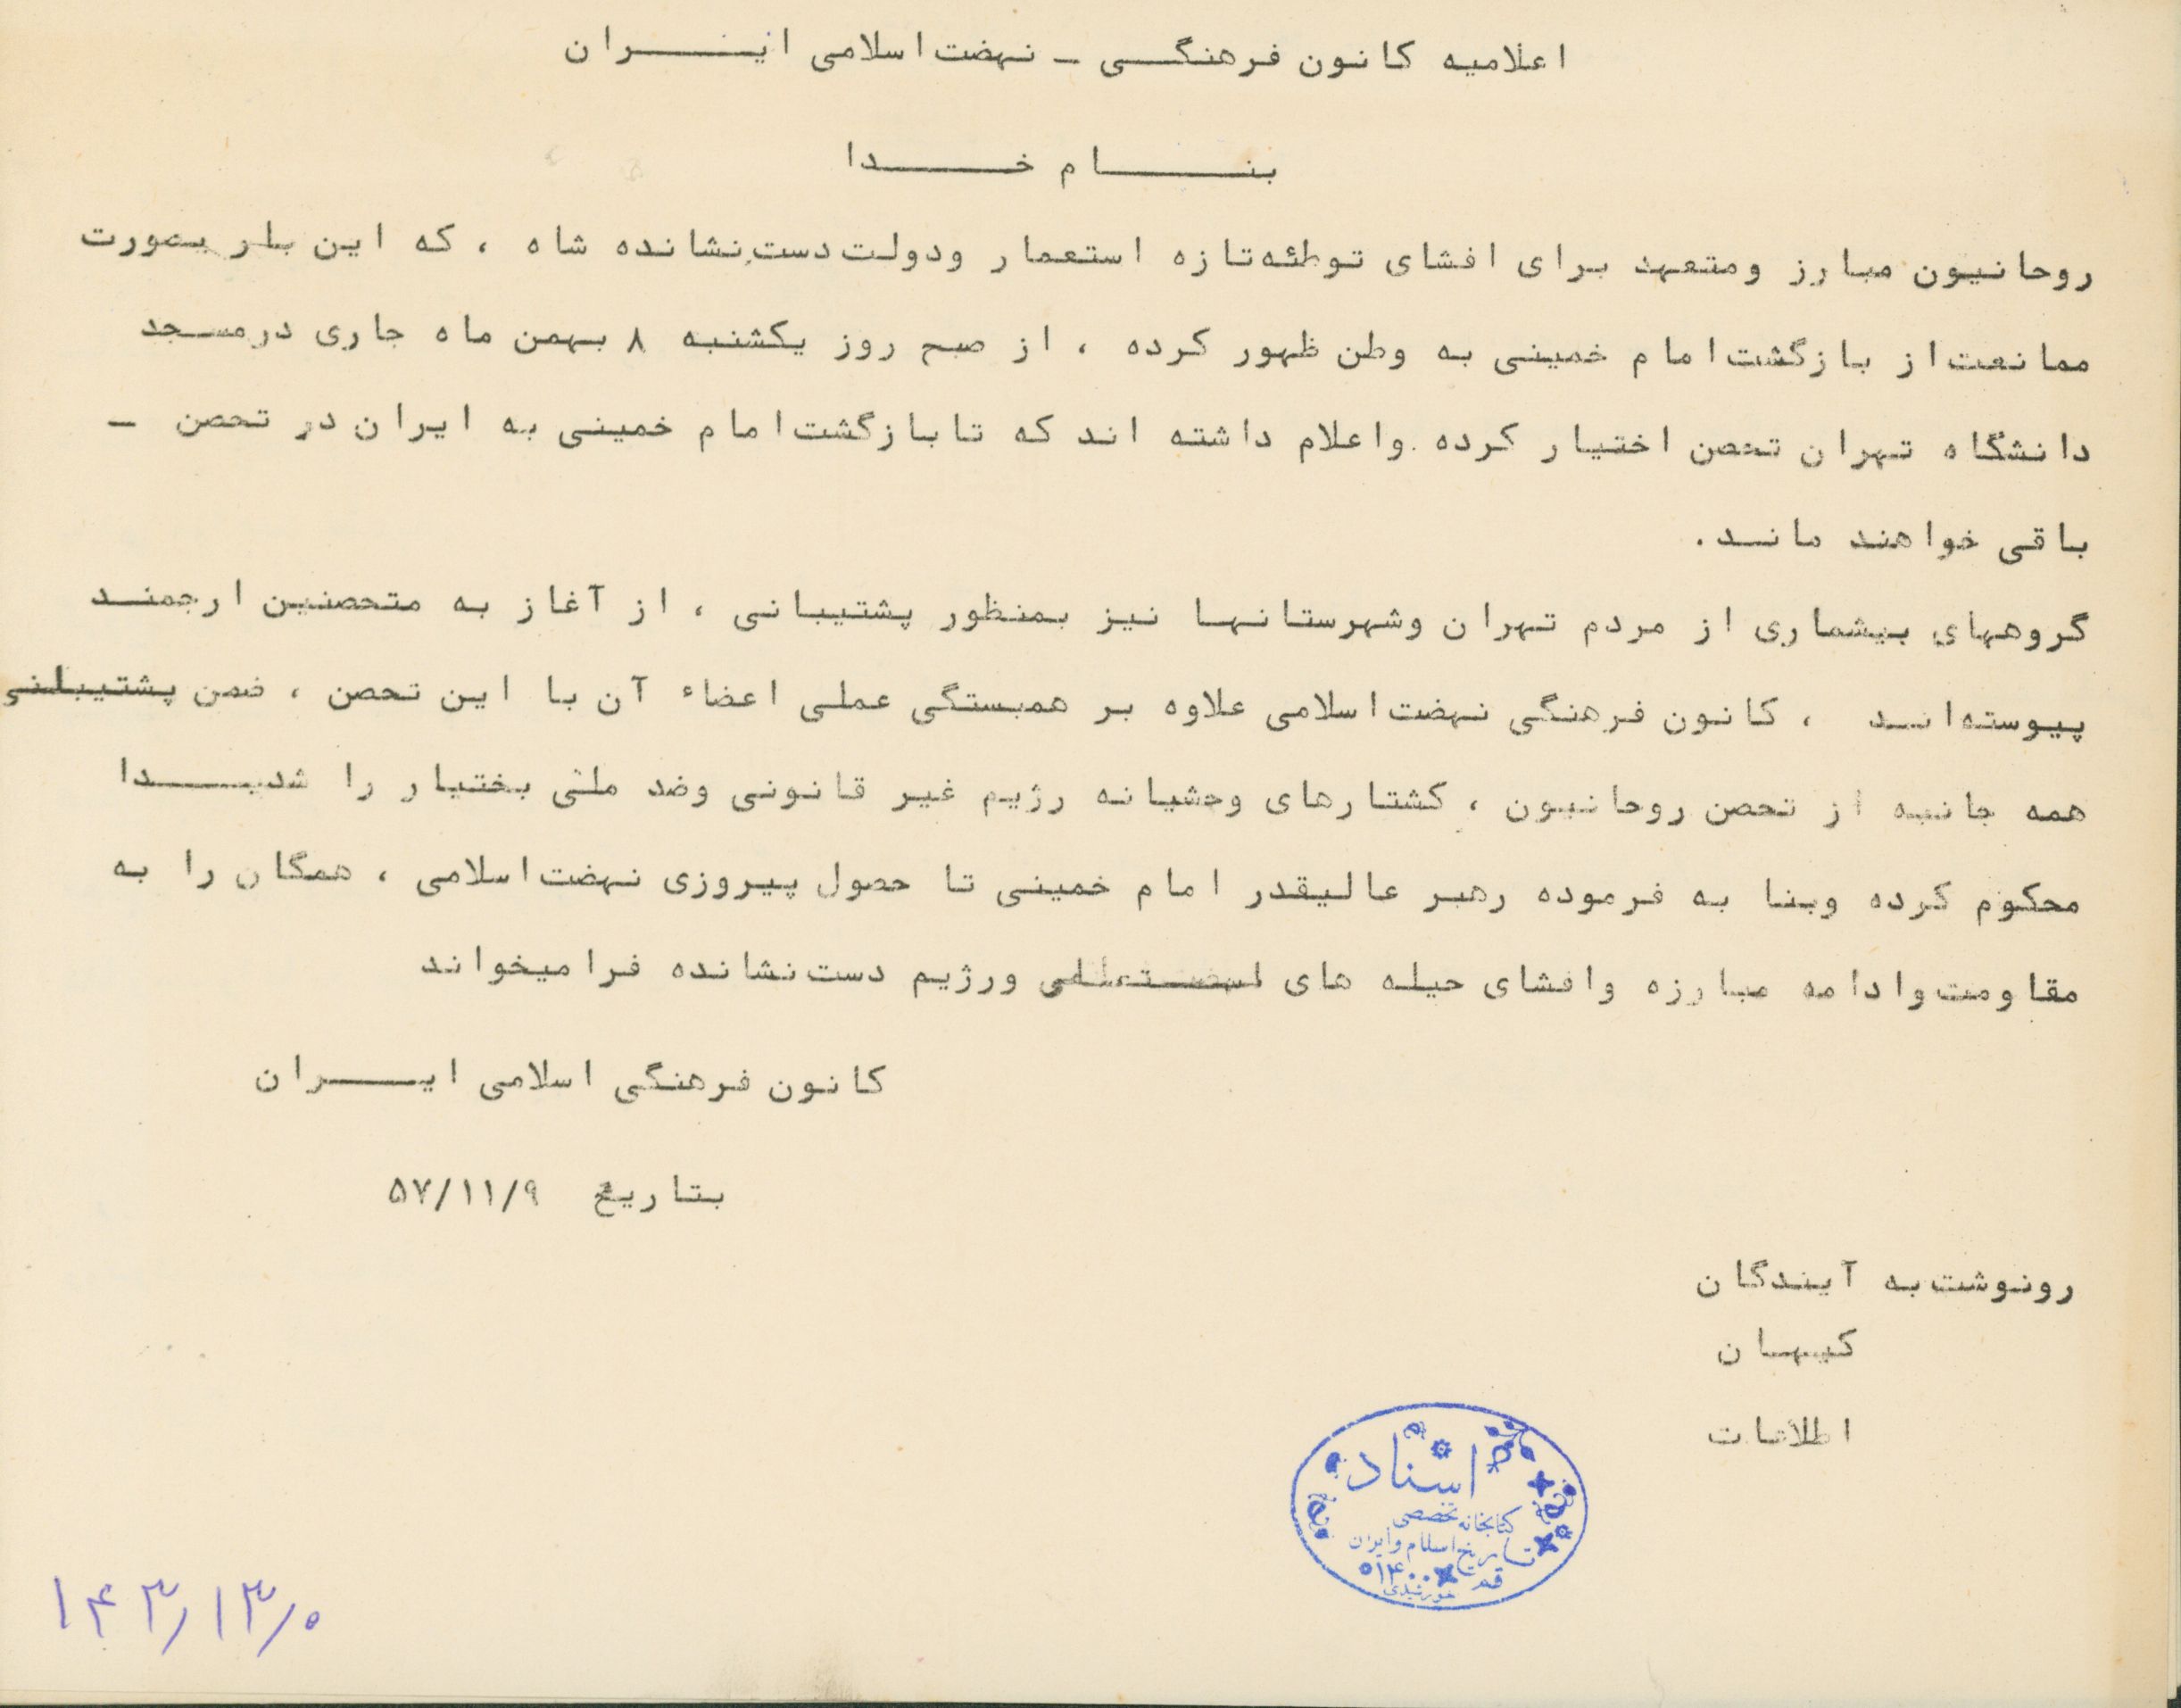 اعلامیه کانون فرهنگی - نهضت اسلامی ایران
بنام خدا
روحانیون مبارز ومتعهد برای افشای توطئه تازه استعمار ودولت دست نشانده شاه ، که این بار بصورت
ممانعت از بازگشت امام خمینی به وطن ظهور کرده ، از صبح روز یکشنبه ۸ بهمن ماه جاری درمسجد
دانشگاه تهران تحصن اختیار کرده واعلام داشته اند که تابازگشت امام خمینی به ایران در تحصن -
باقی خواهند ماند.
گروههای بیشماری از مردم تهران وشهرستانها نیز بمنظور پشتیبانی ، از آغاز به متحصنین ارجمند
پیوسته‌اند ، کانون فرهنگی نهضت اسلامی علاوه بر همبستگی عملی اعضاء آن با این تحصن ، ضمن پشتیبانی
همه جانبه از تحصن روحانیون ، کشتارهای وحشیانه رژیم غیر قانونی وضد ملی بختیار را شدیدا
محکوم کرده وبنا به فرموده رهبر عالیقدر امام خمینی تا حصول پیروزی نهضت اسلامی ، همگان را به
مقاومت وادامه مبارزه وافشای حیله های ورژیم دست نشانده فرا میخواند
کانون فرهنگی اسلامی ایران
بتاریخ ۵۷/۱۱/۹
رونوشت به آیندگان
کیهان
اطلاعات
اسناد
کتابخانه تخصصی
تاریخ اسلام و ایران
قم
۱۴۳/۱۳/۰